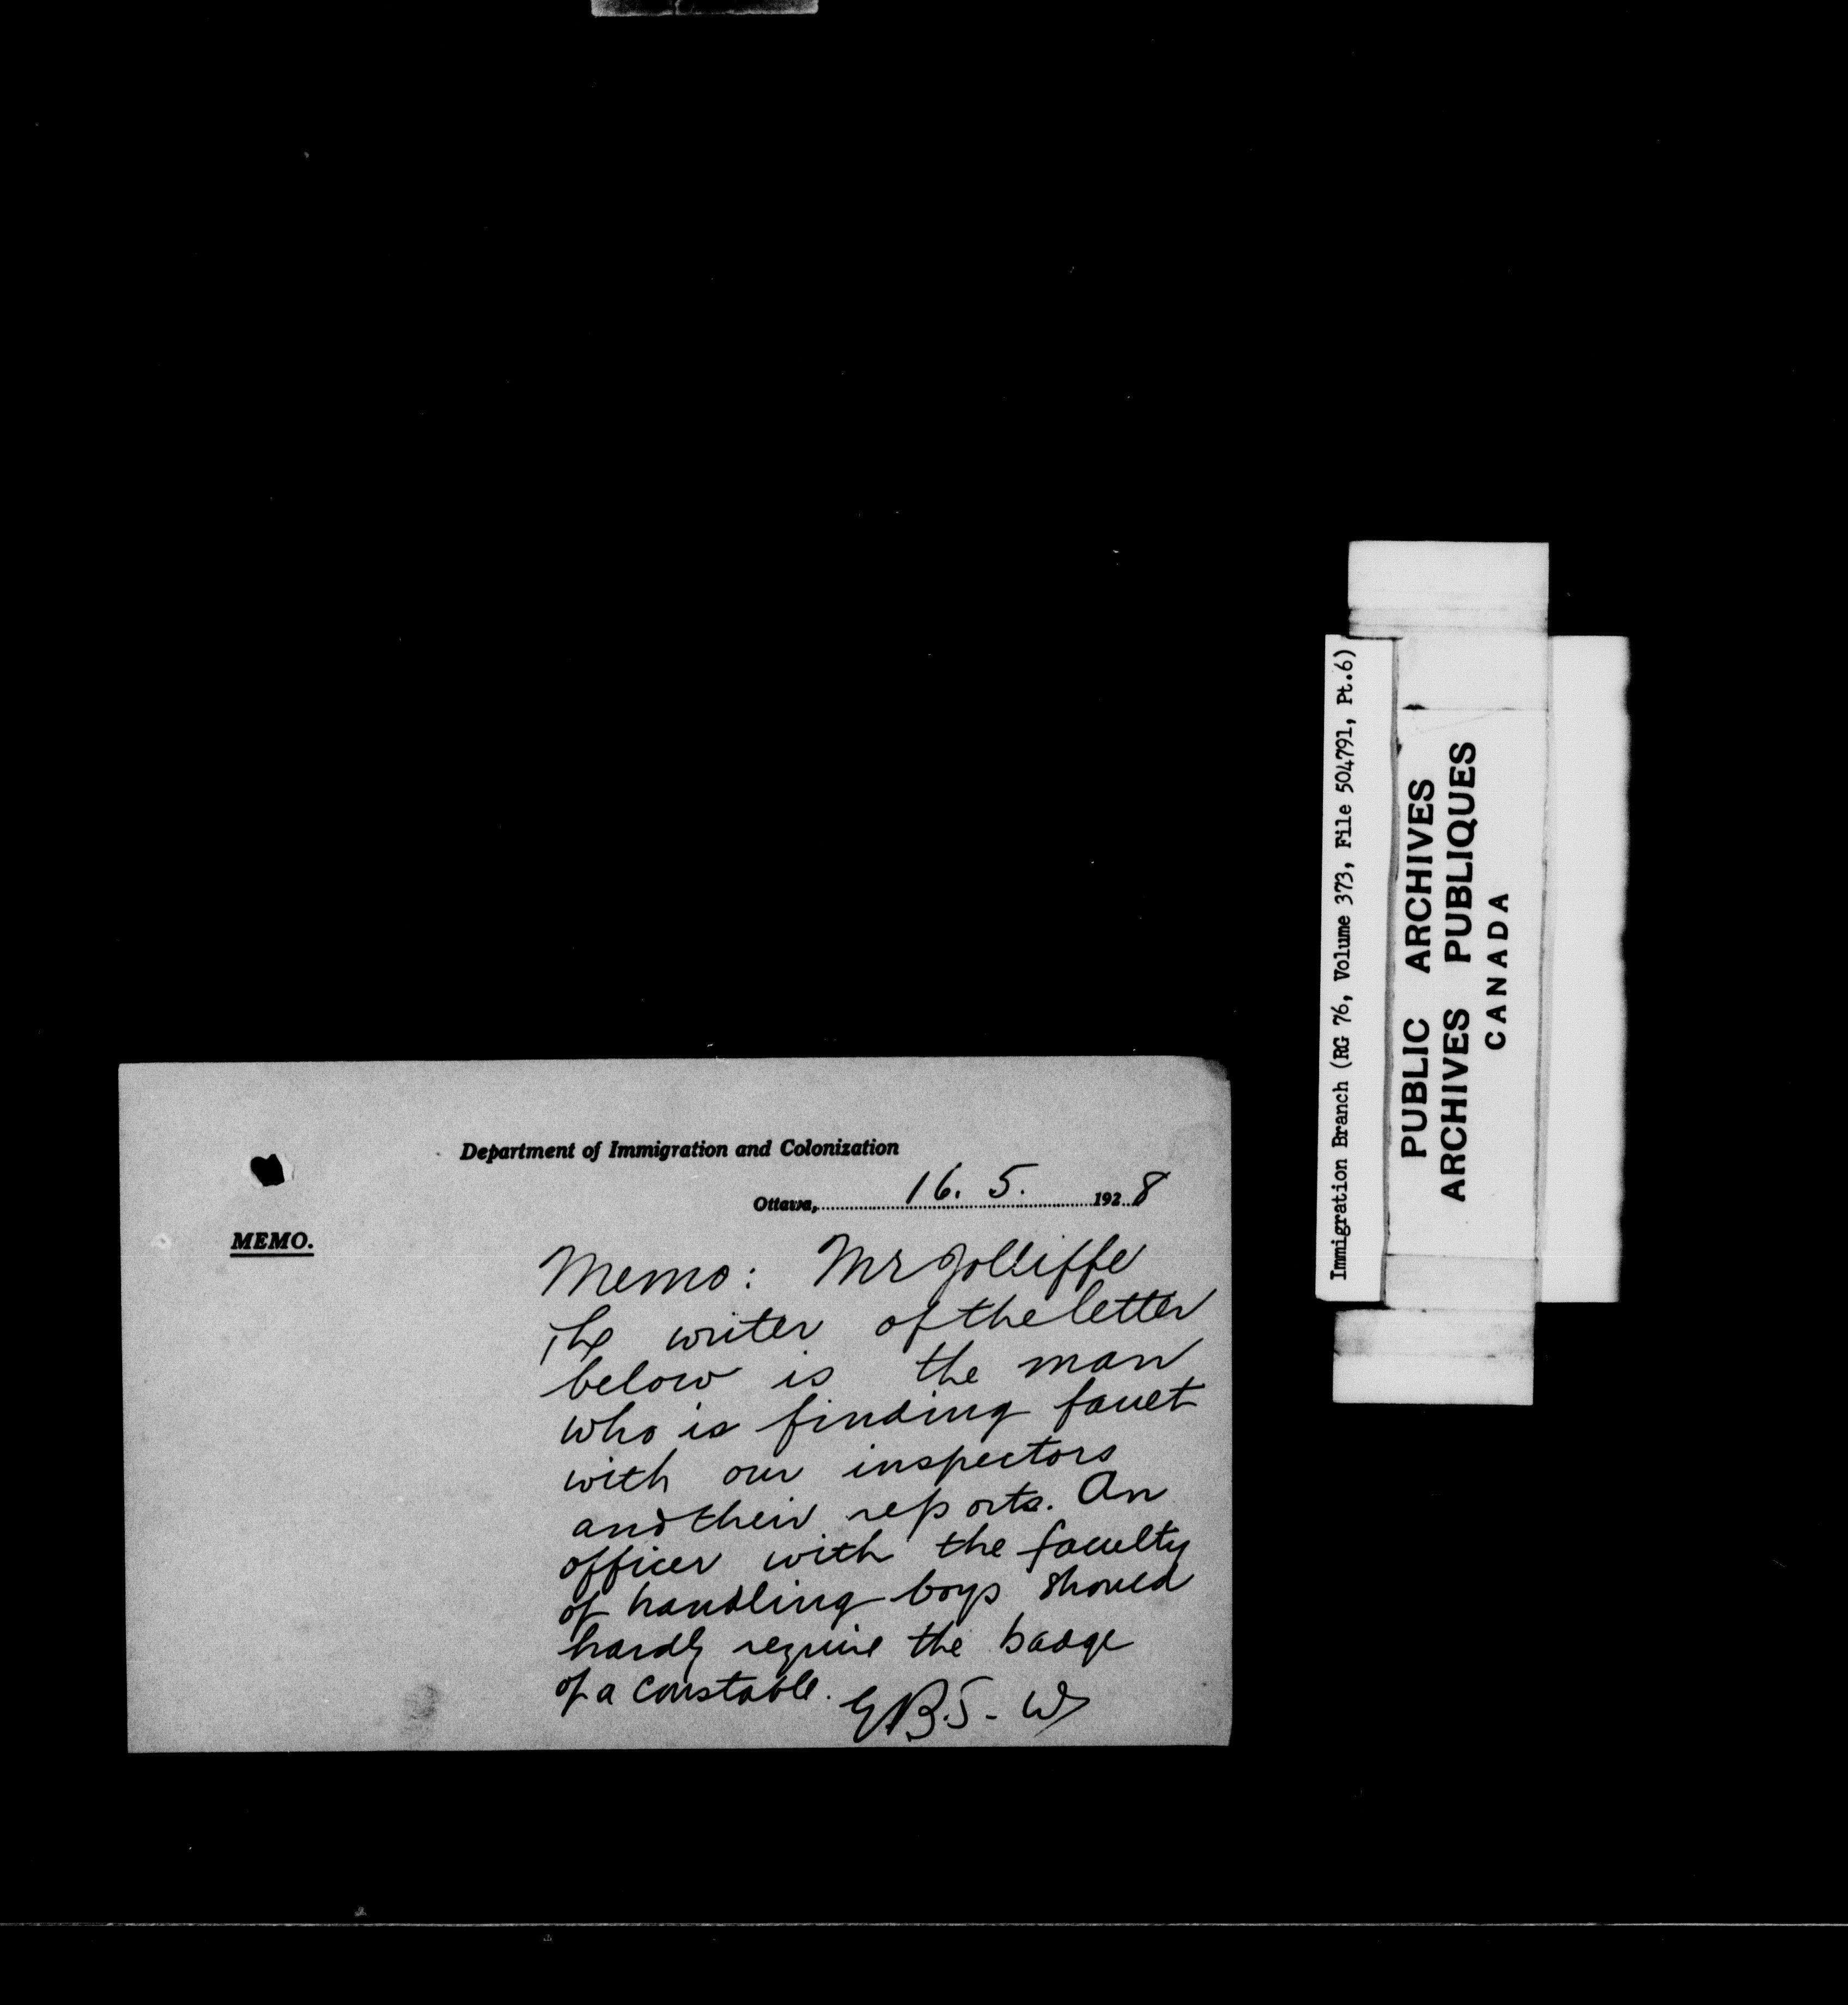 Department of Immigration and Colonization
Ottawa, 16. 5. 1928
MEMO.
Memo: Mr Jolliffe
The writer of the letter
below is the man
who is finding fault
with our inspectors
and their reports. An
officer with the faculty
of handling boys should
hardly require the badge
of a constable. G.B.S-W
Immigration Branch (RG 76, Volume 373, File 504791, Pt.6)
PUBLIC ARCHIVES
ARCHIVES PUBLIQUES
CANADA